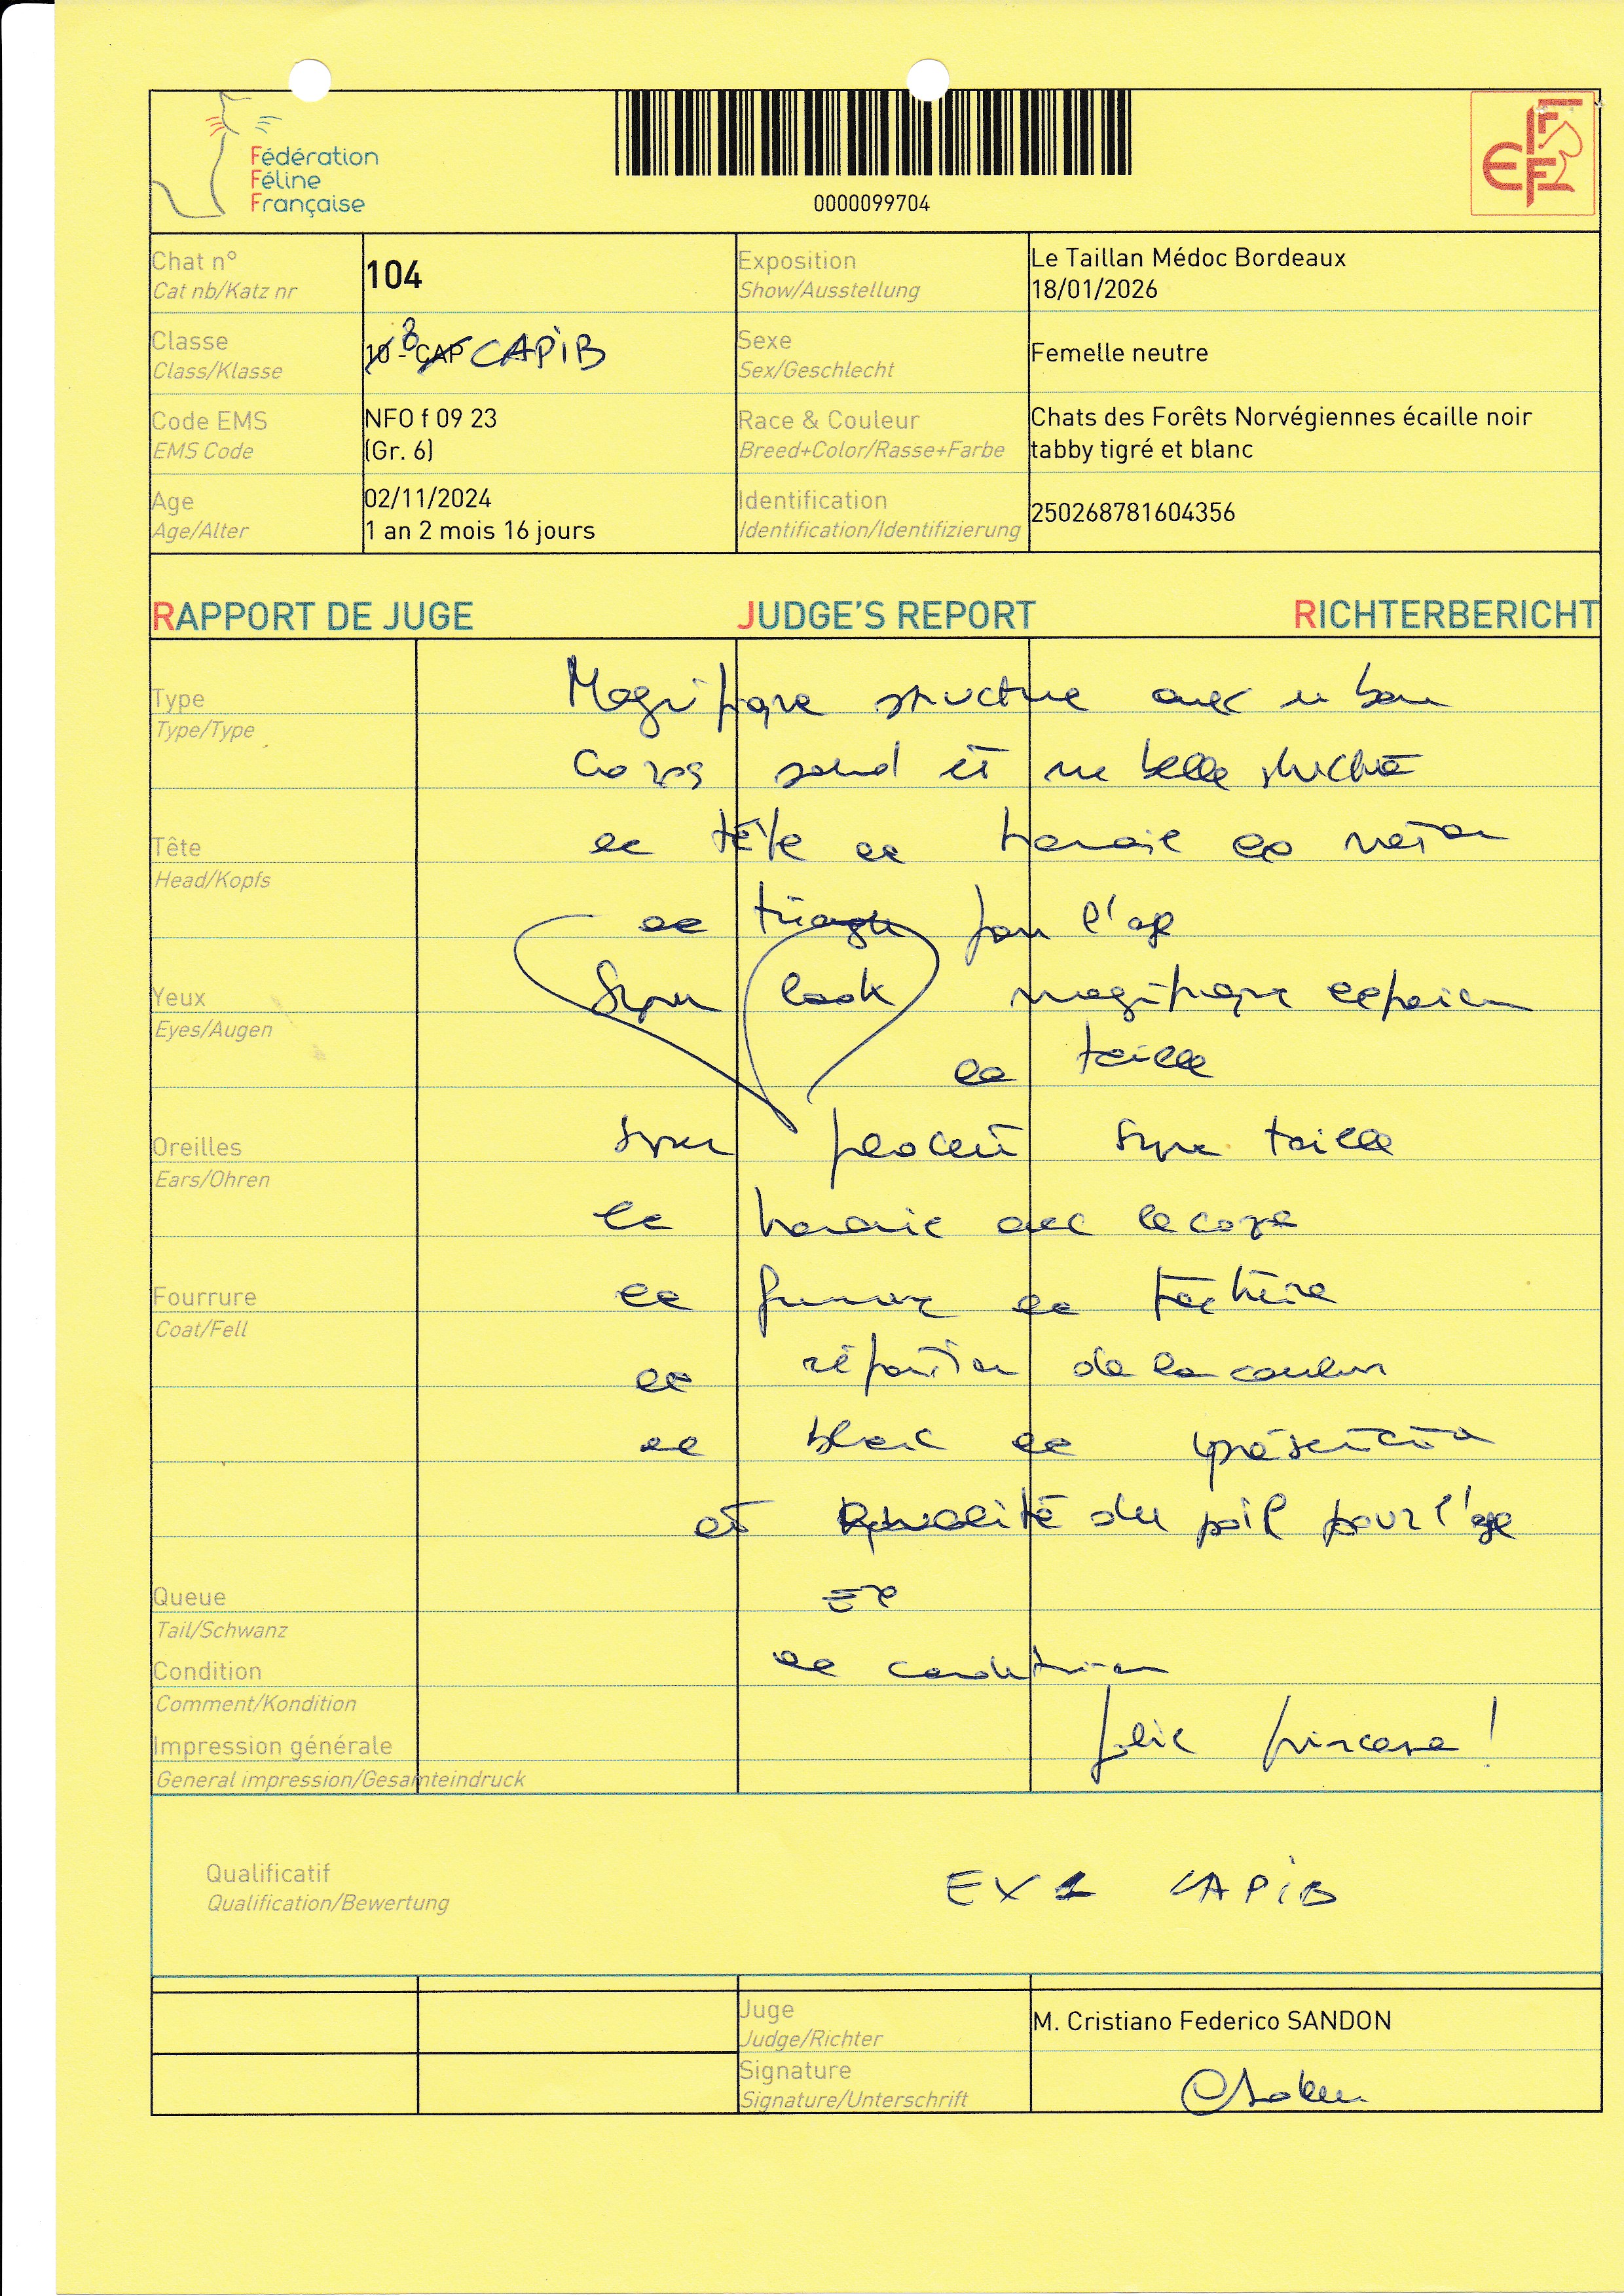 Fédération
Féline
Française
0000099704
FIFE
Chat n° 104 Exposition Le Taillan Médoc Bordeaux
Cat nb/Katz nr Show/Ausstellung 18/01/2026
Classe 10 - CAP 8 CAPIB Sexe Femelle neutre
Class/Klasse Sex/Geschlecht
Code EMS NFO f 09 23 Race & Couleur Chats des Forêts Norvégiennes écaille noir
EMS Code (Gr. 6) Breed+Color/Rasse+Farbe tabby tigré et blanc
Age 02/11/2024 Identification 250268781604356
Age/Alter 1 an 2 mois 16 jours Identification/Identifizierung
RAPPORT DE JUGE JUDGE'S REPORT RICHTERBERICHT
Type Magnifique structure avec un bon
Type/Type
corps et une belle structure
Tête tête
Head/Kopfs
triangle pour l'age
Yeux Super look magnifique
Eyes/Augen
taille
Oreilles super placement super taille
Ears/Ohren
avec le corps
Fourrure
Coat/Fell
de la couleur
blanc présentation
et qualité du poil pour l'age
Queue EX
Tail/Schwanz
Condition condition
Comment/Kondition
Impression générale Jolie princesse!
General impression/Gesamteindruck
Qualificatif EX 1 CAPIB
Qualification/Bewertung
Juge M. Cristiano Federico SANDON
Judge/Richter
Signature
Signature/Unterschrift